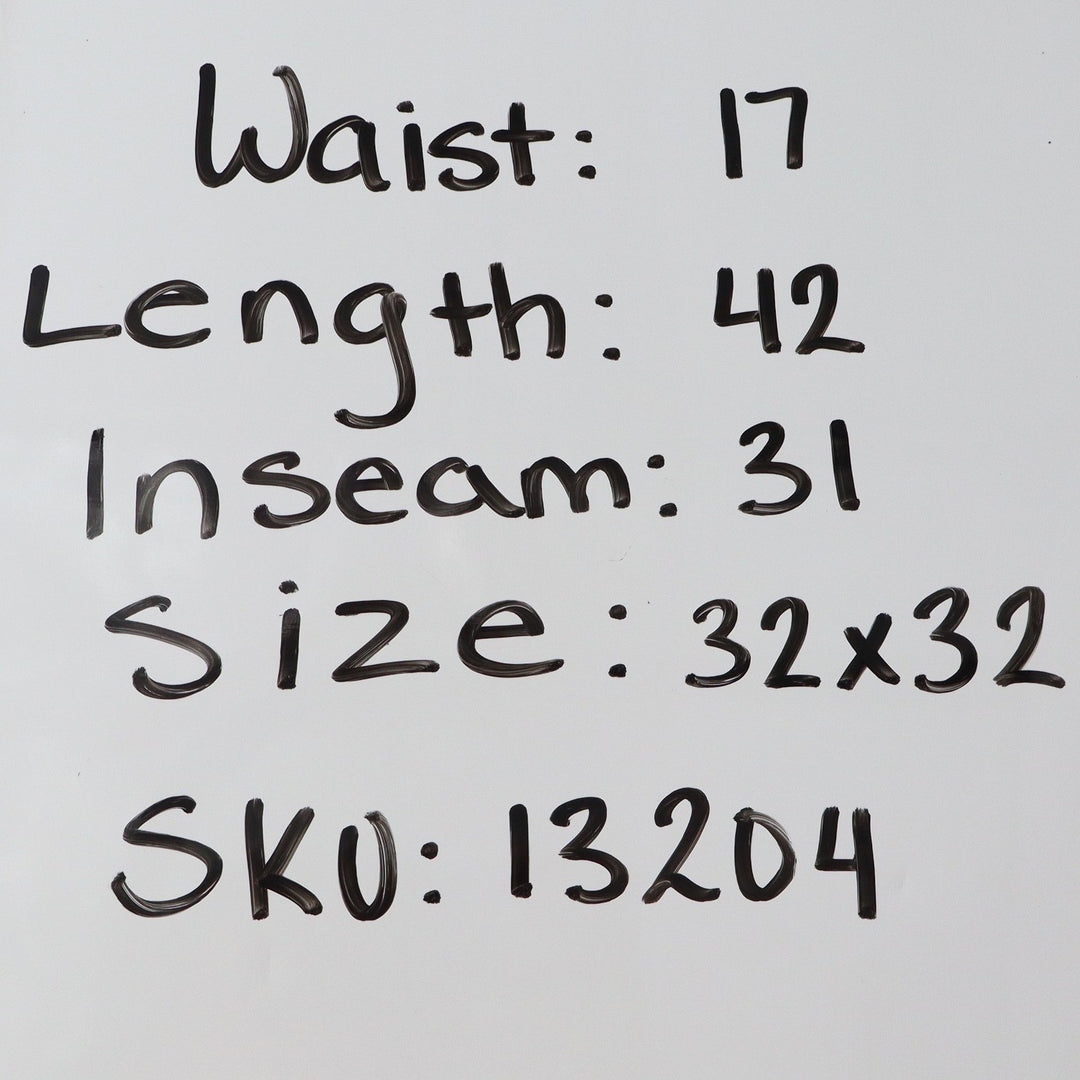 Waist: 17
Length: 42
Inseam: 31
Size: 32x32
SKU: 13204